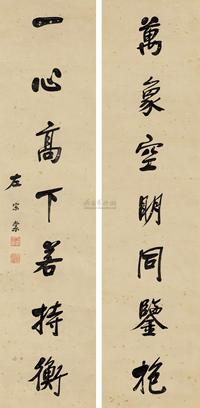 萬象空明同鑒抱
一心高下若持衡
左宗棠